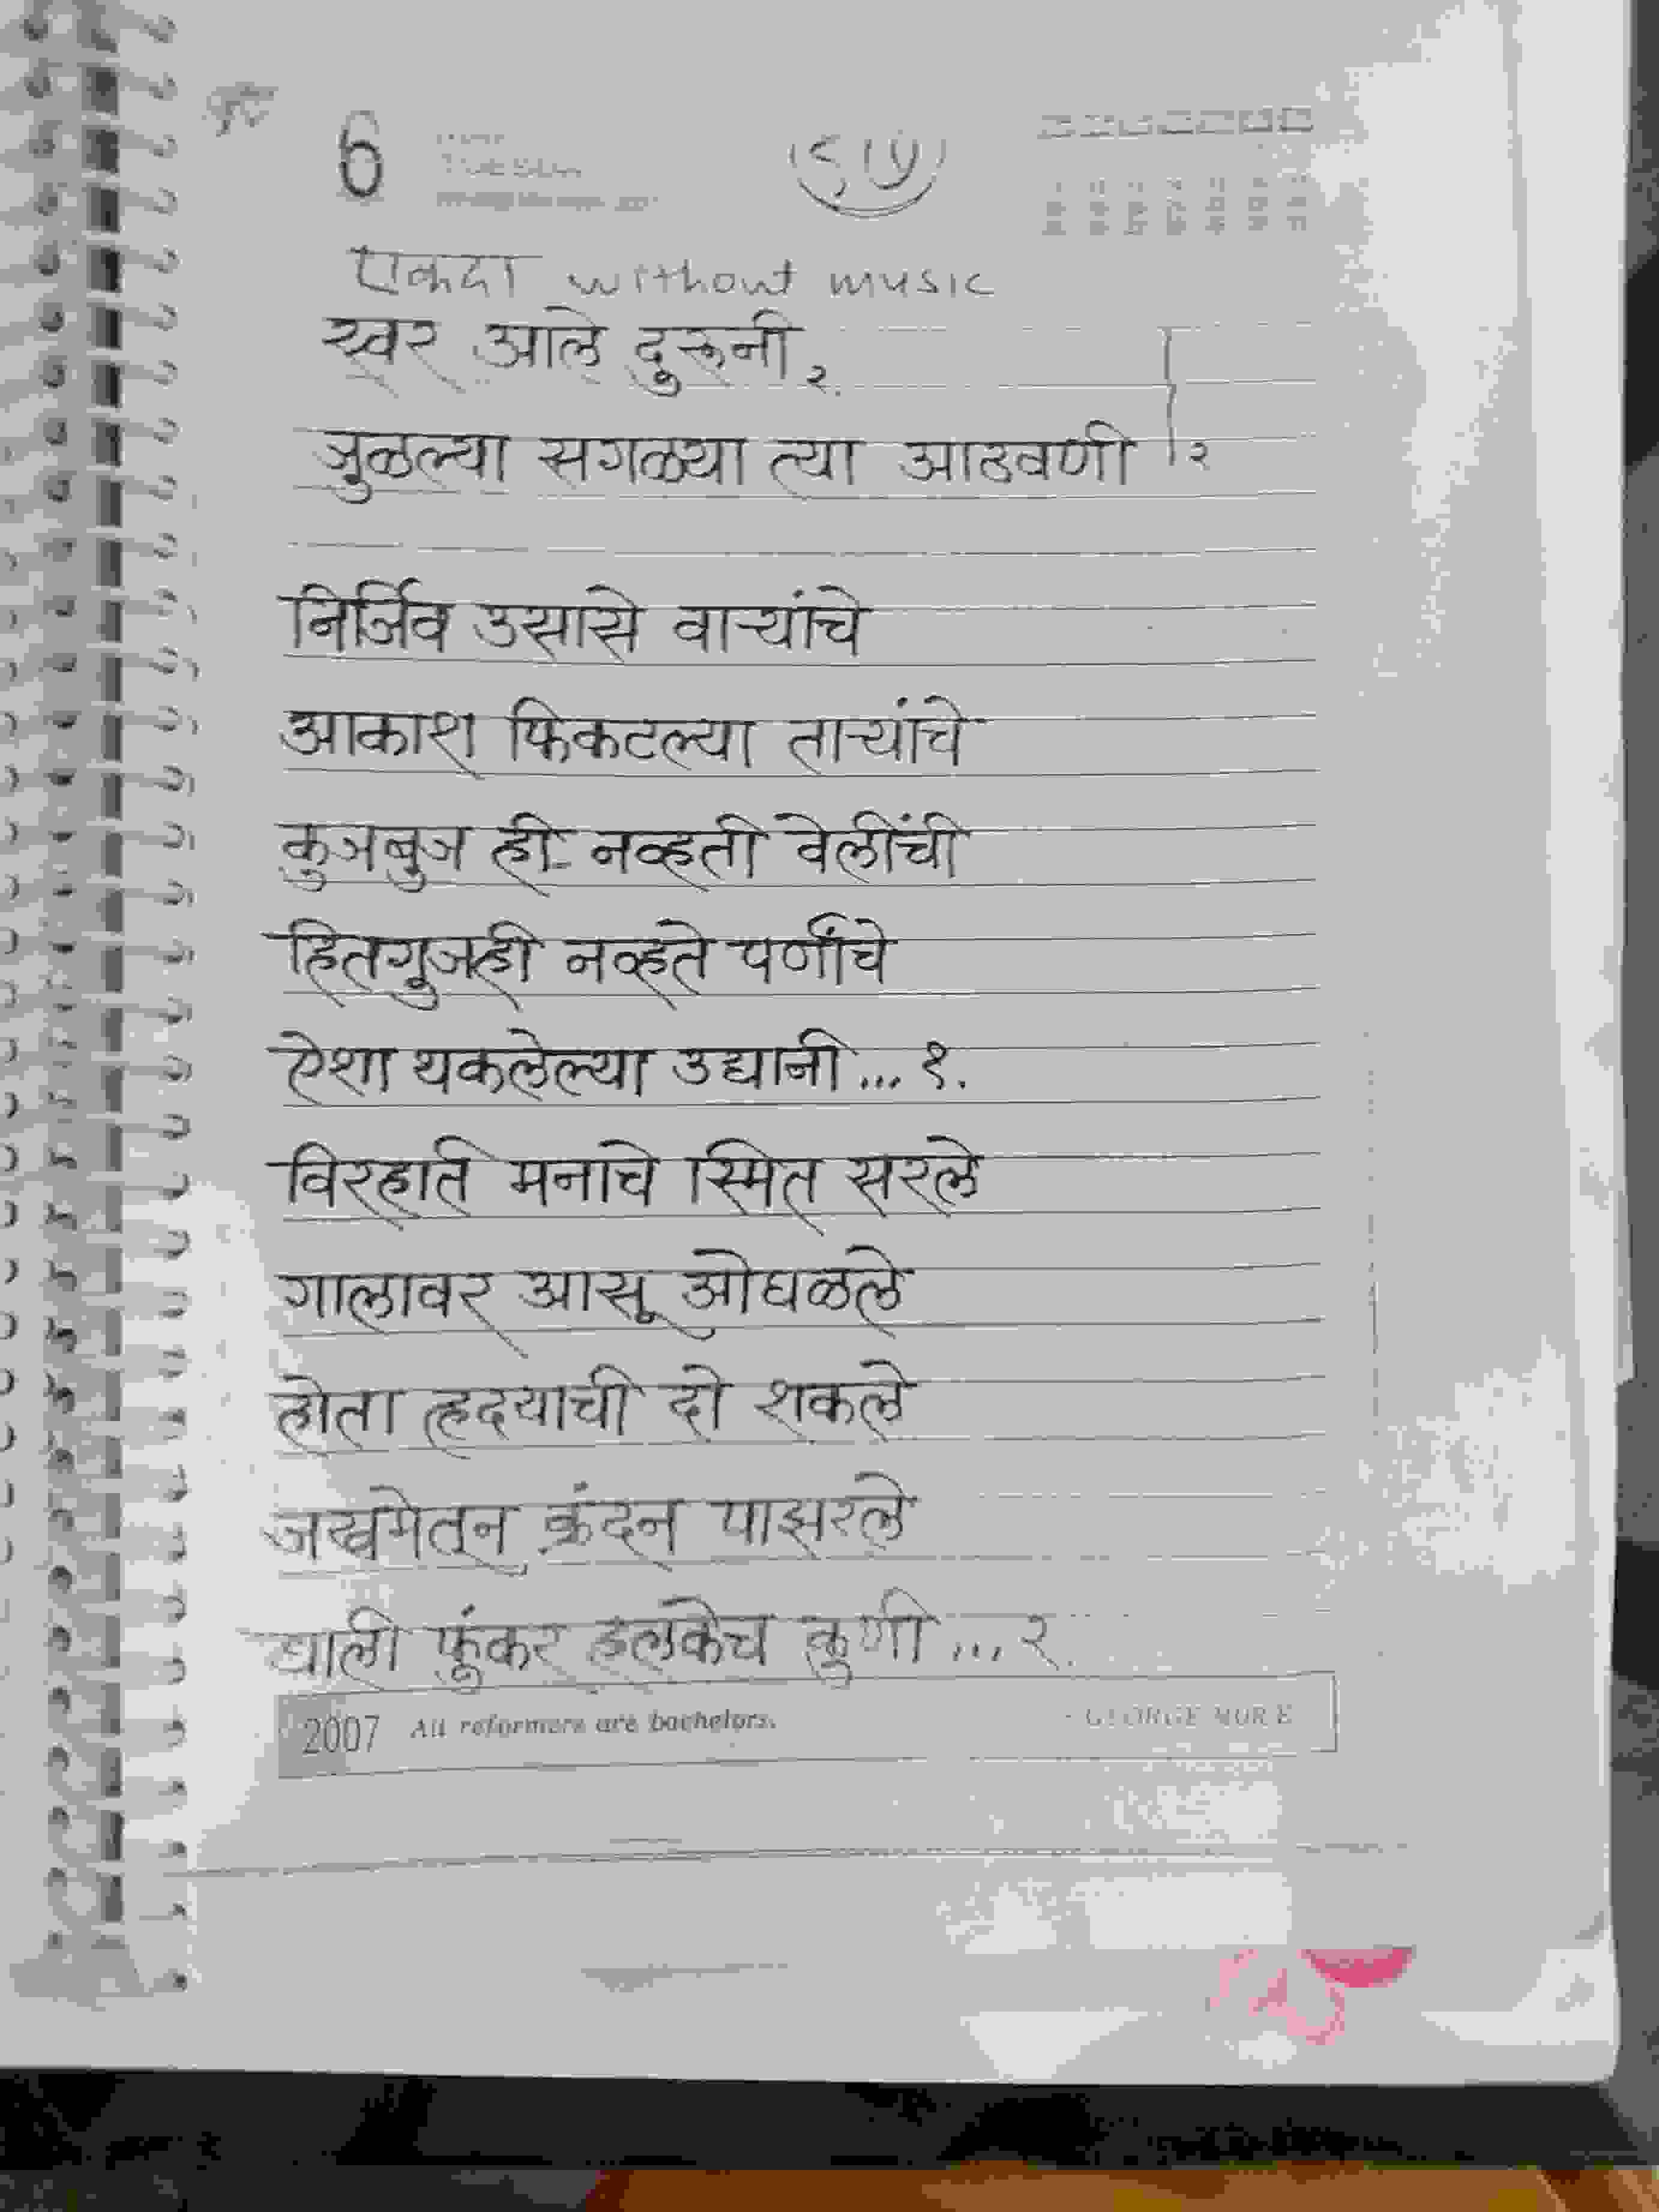 6
TUESDAY
एकदा without music
स्वर आले दुरूनी २
जुळल्या सगळ्या त्या आठवणी २
निर्जिव उसासे वाऱ्यांचे
आकाश फिकटल्या ताऱ्यांचे
कुजबुज ही नव्हती वेलींची
हितगुजही नव्हते पर्णांचे
ऐशा थकलेल्या उद्यानी... १.
विरहार्त मनाचे स्मित सरले
गालावर आसू ओघळले
होता ह्रदयाची दो शकले
जखमेतून क्रंदन पाझरले
घाली फुंकर हलकेच कुणी ... २.
2007 All reformers are bachelors. - GEORGE MORE